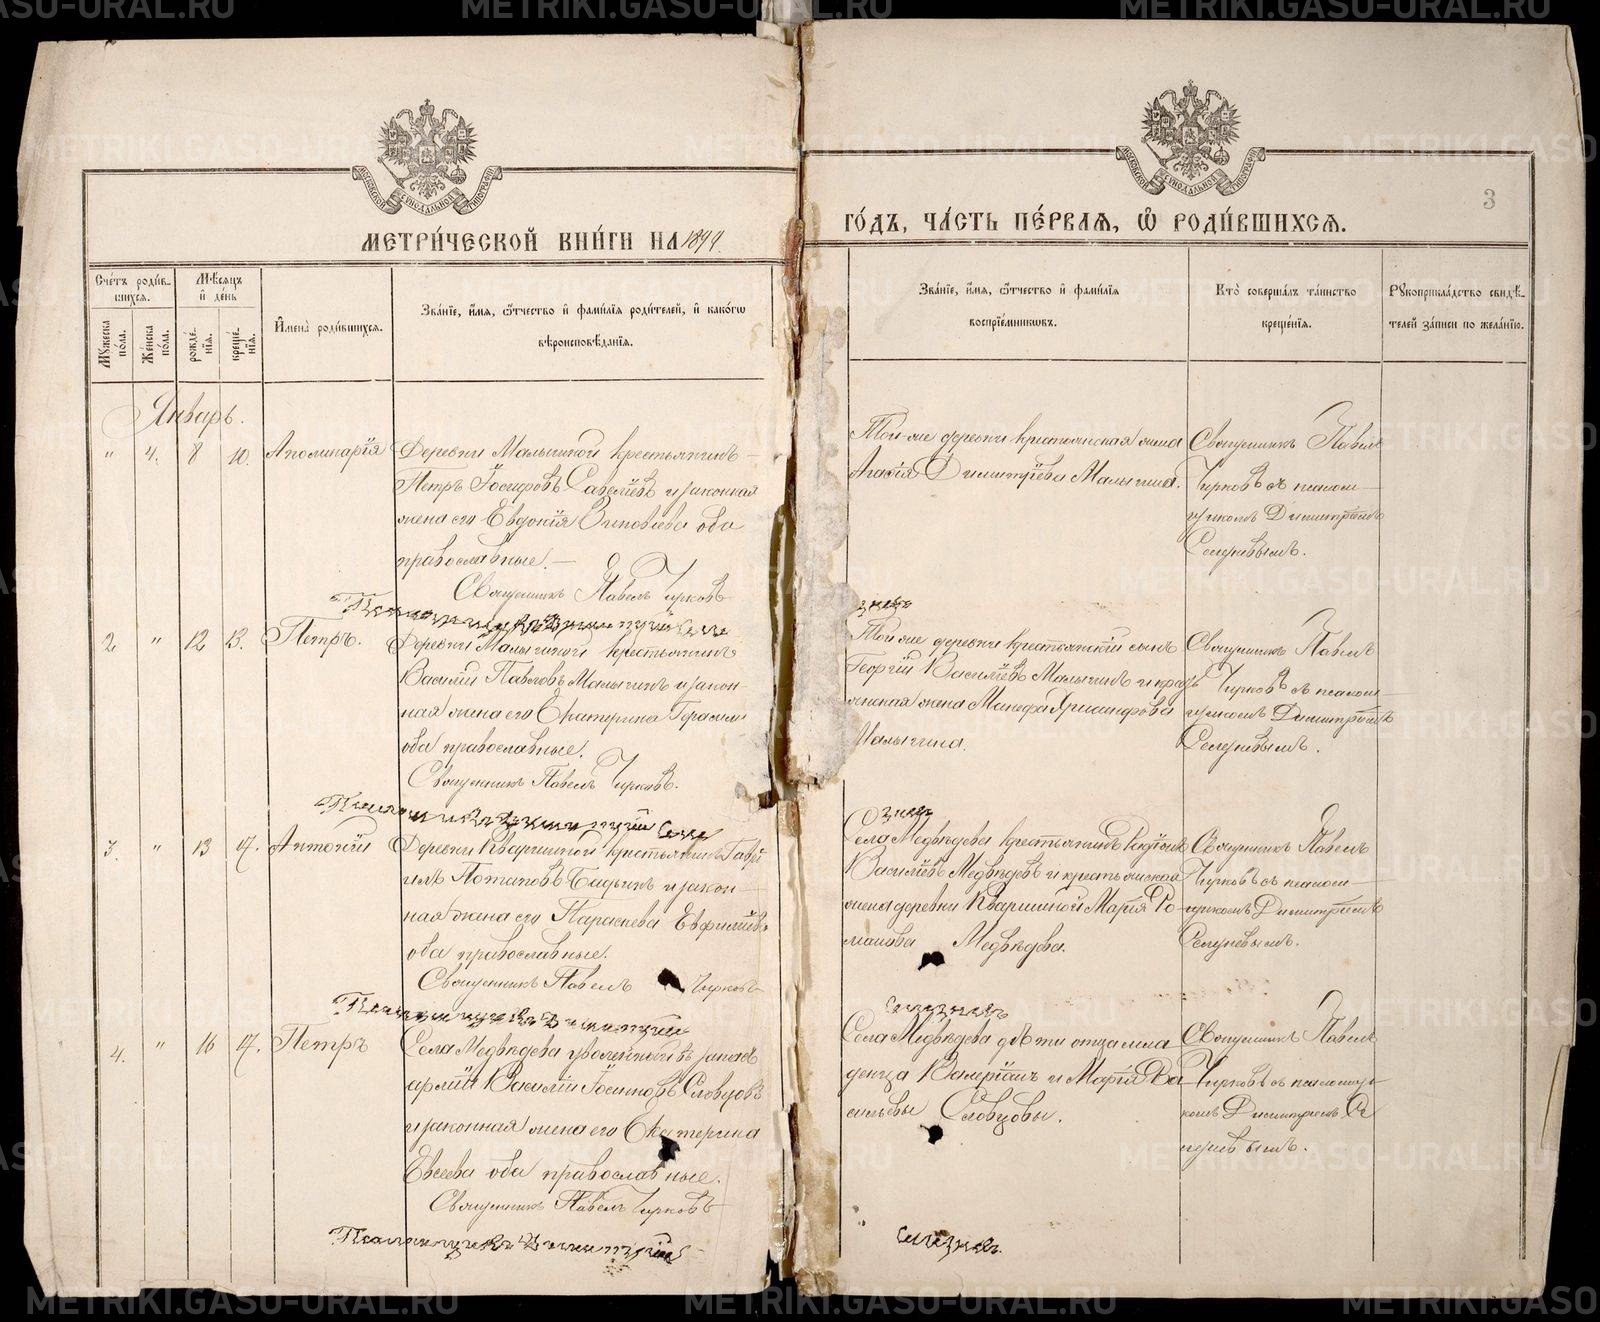 МЕТРИ́ЧЕСКОЙ КНИ́ГИ НА 1894
ГО́ДЪ, ЧА́СТЬ ПЕ́РВАѦ, Ѡ РОДИ́ВШИХСѦ.
3
Сче́тъ роди́в-
шихся.
Мѣ́сяцъ
и де́нь
Му́жеска по́ла.
Же́нска по́ла.
рожде́-
нїя.
креще́-
нїя.
И҆мена̀ роди́вшихся.
Зва́нїе, и҆мя, ѻ҆́тчество и҆ фами́лїя роди́телей, и҆ како́гѡ
вѣроисповѣ́данїя.
Зва́нїе, и҆мя, ѻ҆́тчество и҆ фами́лїя
воспрїе́мниковъ.
Кто̀ соверша́лъ та́инство
креще́нїя.
Рꙋкоприкла́дство свидѣ́-
телей за́писи по жела́нїю.
Январь.
" 4. 8 10. Аполинарія
Деревни Малыгиной крестьянинъ
Петръ Іосифовъ Савеліевъ и законная
жена его Евдокія Зиновіева оба
православные.
Священникъ Павелъ Чирковъ
Той-же деревни крестьянская жена
Агафія Димитріева Малыгина.
Священникъ Павелъ
Чирковъ съ псалом-
щикомъ Димитріемъ
Селезневымъ.
2 " 12 13. Петръ.
Деревни Малыгиной крестьянинъ
Василій Павловъ Малыгинъ и закон-
ная жена его Екатерина Герасим
оба православные.
Священникъ Павелъ Чирковъ.
Той же деревни крестьянскій сынъ
Георгій Василіевъ Малыгинъ и крес
Малыгина.
Священникъ Павелъ
Чирковъ съ псалом-
щикомъ Димитріемъ
Селезневымъ.
3. " 13 17. Антоній
Деревни Кваршиной крестьянинъ Гаврі
илъ Потаповъ и закон-
ная жена его Параскева Евфиміев
оба православные.
Священникъ Павелъ Чирковъ
Села Медвѣдева крестьянинъ
Василіевъ Медвѣдевъ и крестьянская
жена деревни Кваршиной Марія Ро-
манова Медвѣдева.
Священникъ Павелъ
Чирковъ съ псалом-
щикомъ Димитріемъ
Селезневымъ.
4. " 16 17. Петръ
Села Медвѣдева уволенный въ запасъ
арміи Василій Іосифовъ Словцовъ
и законная жена его Екатерина
Евсеева оба православные.
Священникъ Павелъ Чирковъ
Села Медвѣдева дѣти отца мла
денца Валеріанъ и Марія Ва
сильевы Словцовы.
Священникъ Павелъ
Чирковъ съ псаломщи-
комъ Димитріемъ Се
лезневымъ.
Псаломщикъ Димитрій
Селезневъ.
METRIKI.GASO-URAL.RU